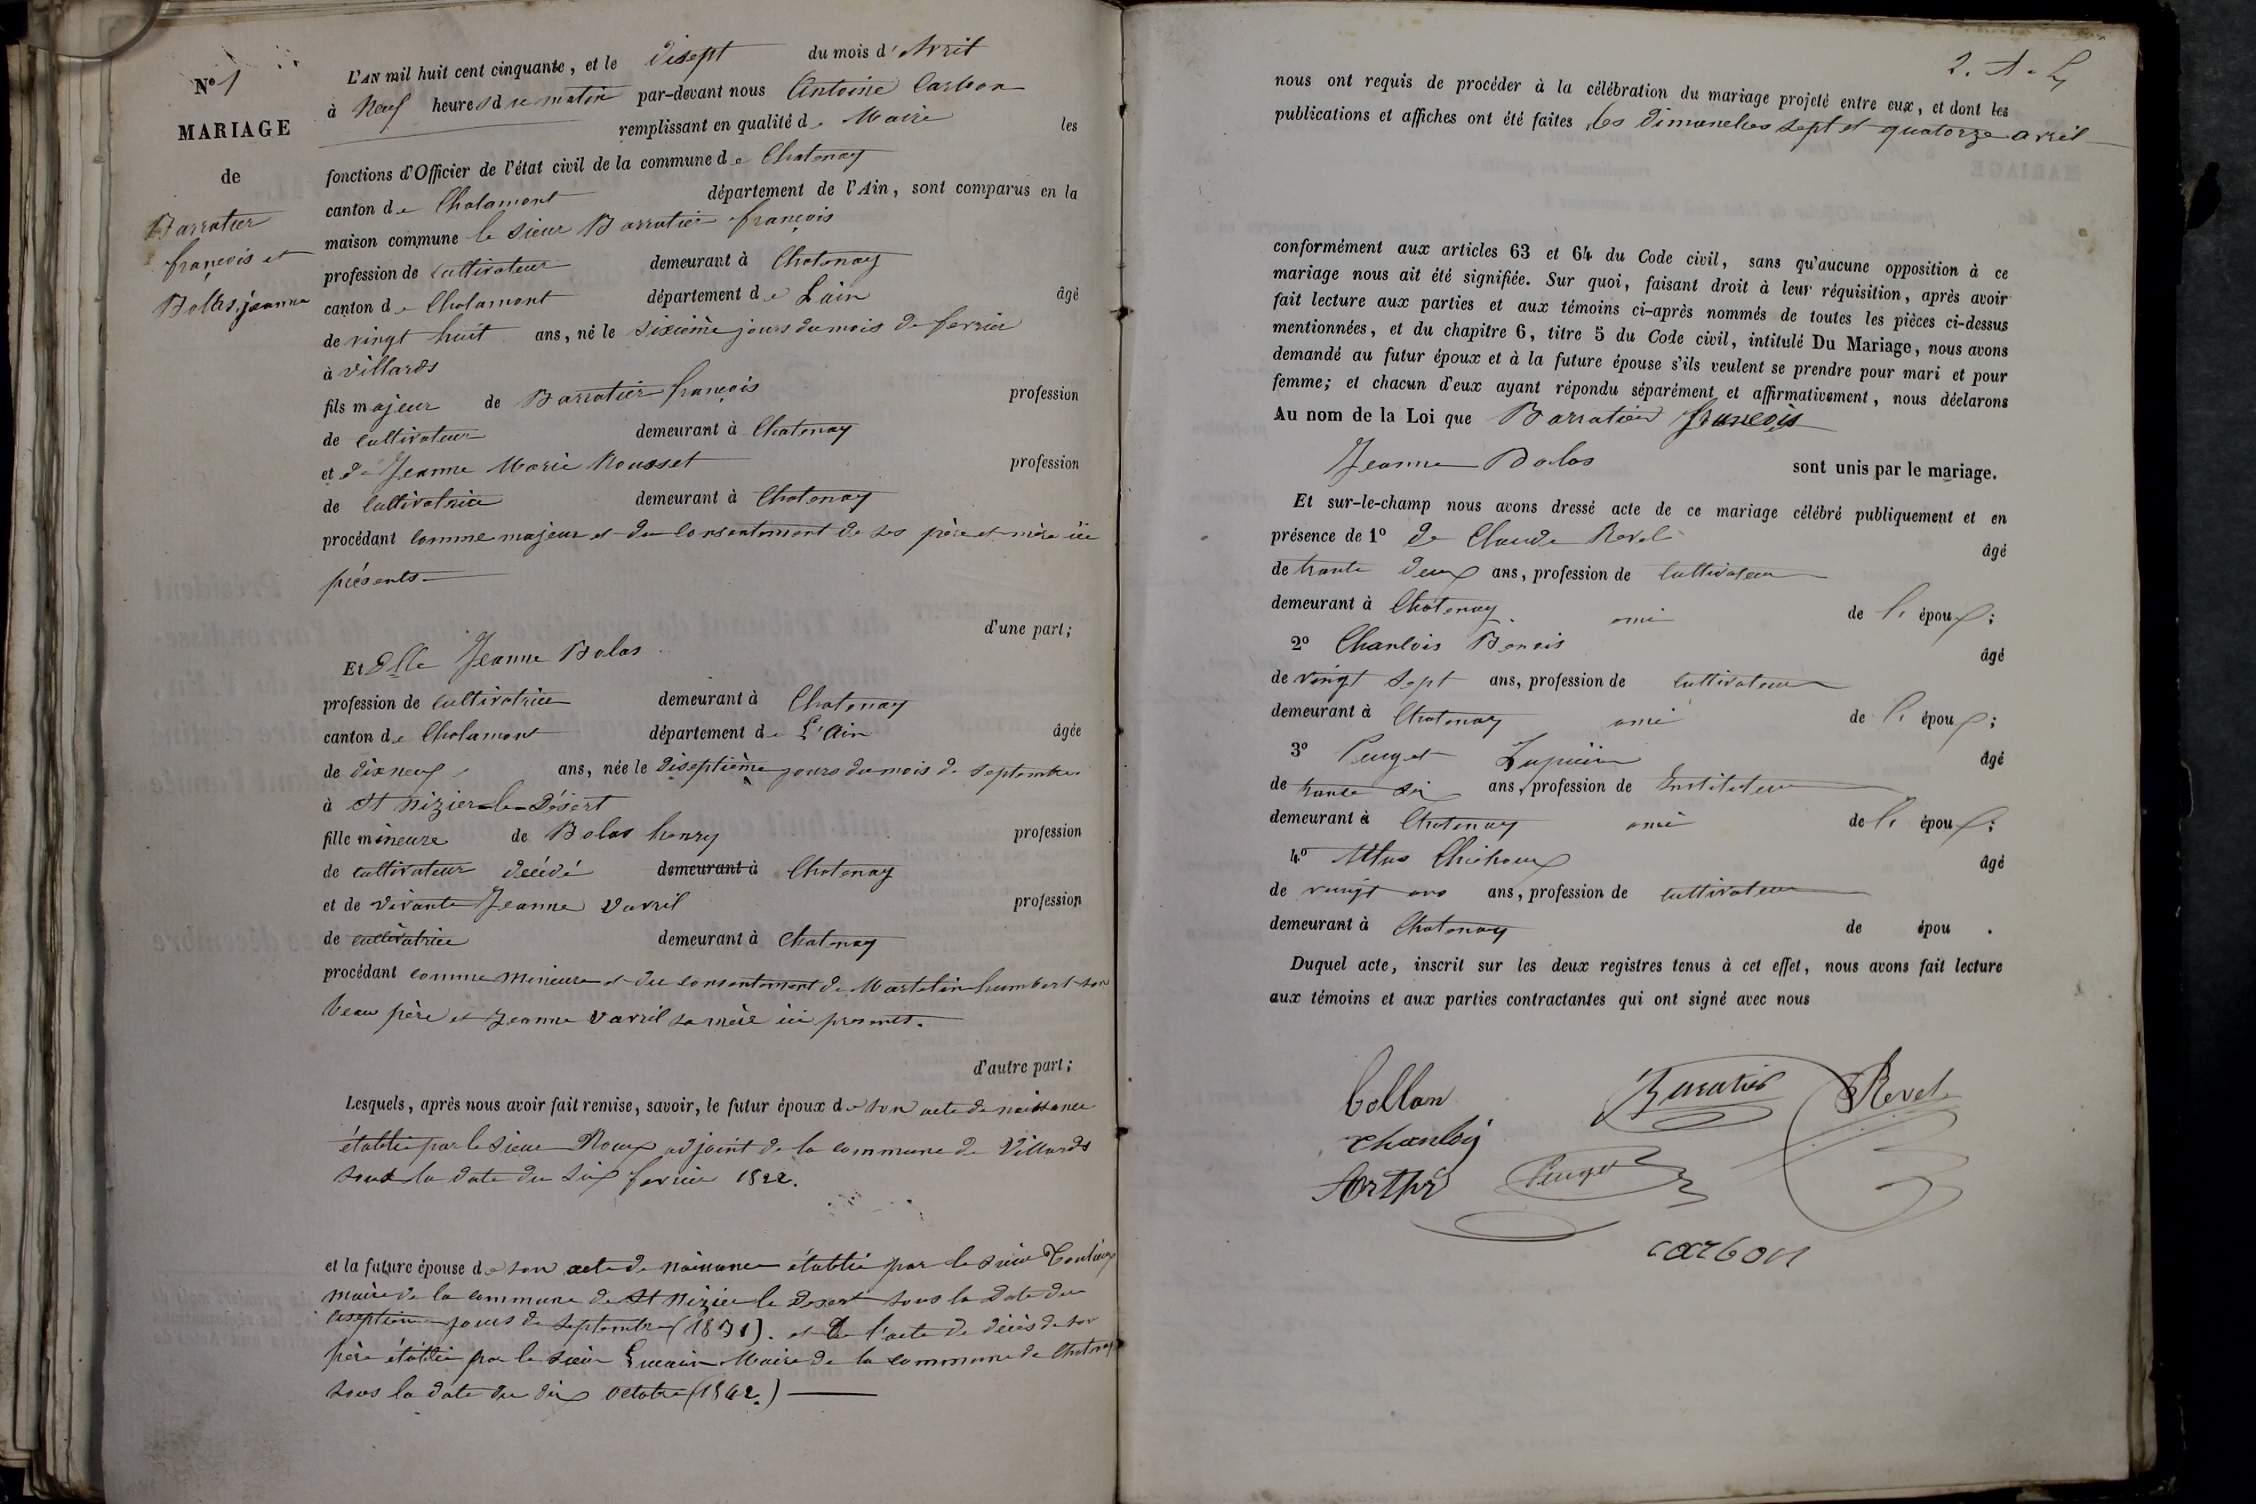 N° 1
MARIAGE
de
Barratier
françois et
Bolas jeanne
L'AN mil huit cent cinquante, et le disept du mois d'Avril
à Neuf heures du matin par-devant nous Antoine Carbon
remplissant en qualité de Maire les
fonctions d'Officier de l'état civil de la commune de Chatenay
canton de Chalamont département de l'Ain, sont comparus en la
maison commune le sieur Barratier françois
profession de cultivateur demeurant à Chatenay
canton de Chalamont département de Lain âgé
de vingt huit ans, né le sixième jours du mois de fevrier
à villards
fils majeur de Barratier françois profession
de cultivateur demeurant à Chatenay
et de Jeanne Marie Rousset profession
de cultivatrice demeurant à Chatenay
procédant comme majeur et du consentement de ses père et mère ici
présents
d'une part;
Et Elle Jeanne Bolas
profession de cultivatrice demeurant à Chatenay
canton de Chalamont département de L'Ain âgée
de dix neuf ans, née le diseptième jours du mois de septembre
à St Nizier-le-Désert
fille mineure de Bolas henry profession
de cultivateur decédé demeurant à Chatenay
et de vivante Jeanne Varril profession
de cultivatrice demeurant à Chatenay
procédant comme mineure et du consentement de Martelin humbert son
beau père et Jeanne Varril sa mère ici présents.
d'autre part;
Lesquels, après nous avoir fait remise, savoir, le futur époux de son acte de naissance
établie par le sieur Roux adjoint de la commune de Villards
sous la date du six fevrier 1822.
et la future épouse de son acte de naissance établie par le sieur
maire de la commune de St Nizier le Desert sous la date du
diseptième jours de septembre (1831). et de l'acte de décès de son
père établie par le sieur Maire de la commune de Chatenay
sous la date du dix octobre (1842.)
2. A.
nous ont requis de procéder à la célébration du mariage projeté entre eux, et dont les
publications et affiches ont été faites les Dimanches sept et quatorze avril
conformément aux articles 63 et 64 du Code civil, sans qu'aucune opposition à ce
mariage nous ait été signifiée. Sur quoi, faisant droit à leur réquisition, après avoir
fait lecture aux parties et aux témoins ci-après nommés de toutes les pièces ci-dessus
mentionnées, et du chapitre 6, titre 5 du Code civil, intitulé Du Mariage, nous avons
demandé au futur époux et à la future épouse s'ils veulent se prendre pour mari et pour
femme; et chacun d'eux ayant répondu séparément et affirmativement, nous déclarons
Au nom de la Loi que Barratier françois
Jeanne Bolas sont unis par le mariage.
Et sur-le-champ nous avons dressé acte de ce mariage célébré publiquement et en
présence de 1° de Claude Revel âgé
de trante deux ans, profession de cultivateur
demeurant à Chatenay ami de l' époux;
2° Chanlois Benois âgé
de vingt sept ans, profession de cultivateur
demeurant à Chatenay ami de l' époux;
3° Peuget âgé
de trante six ans, profession de Instituteur
demeurant à Chatenay ami de l' époux;
4° âgé
de vingt ans, profession de cultivateur
demeurant à Chatenay de épou .
Duquel acte, inscrit sur les deux registres tenus à cet effet, nous avons fait lecture
aux témoins et aux parties contractantes qui ont signé avec nous
Collon Baratier Revel
chanloy
Peuget
carbon